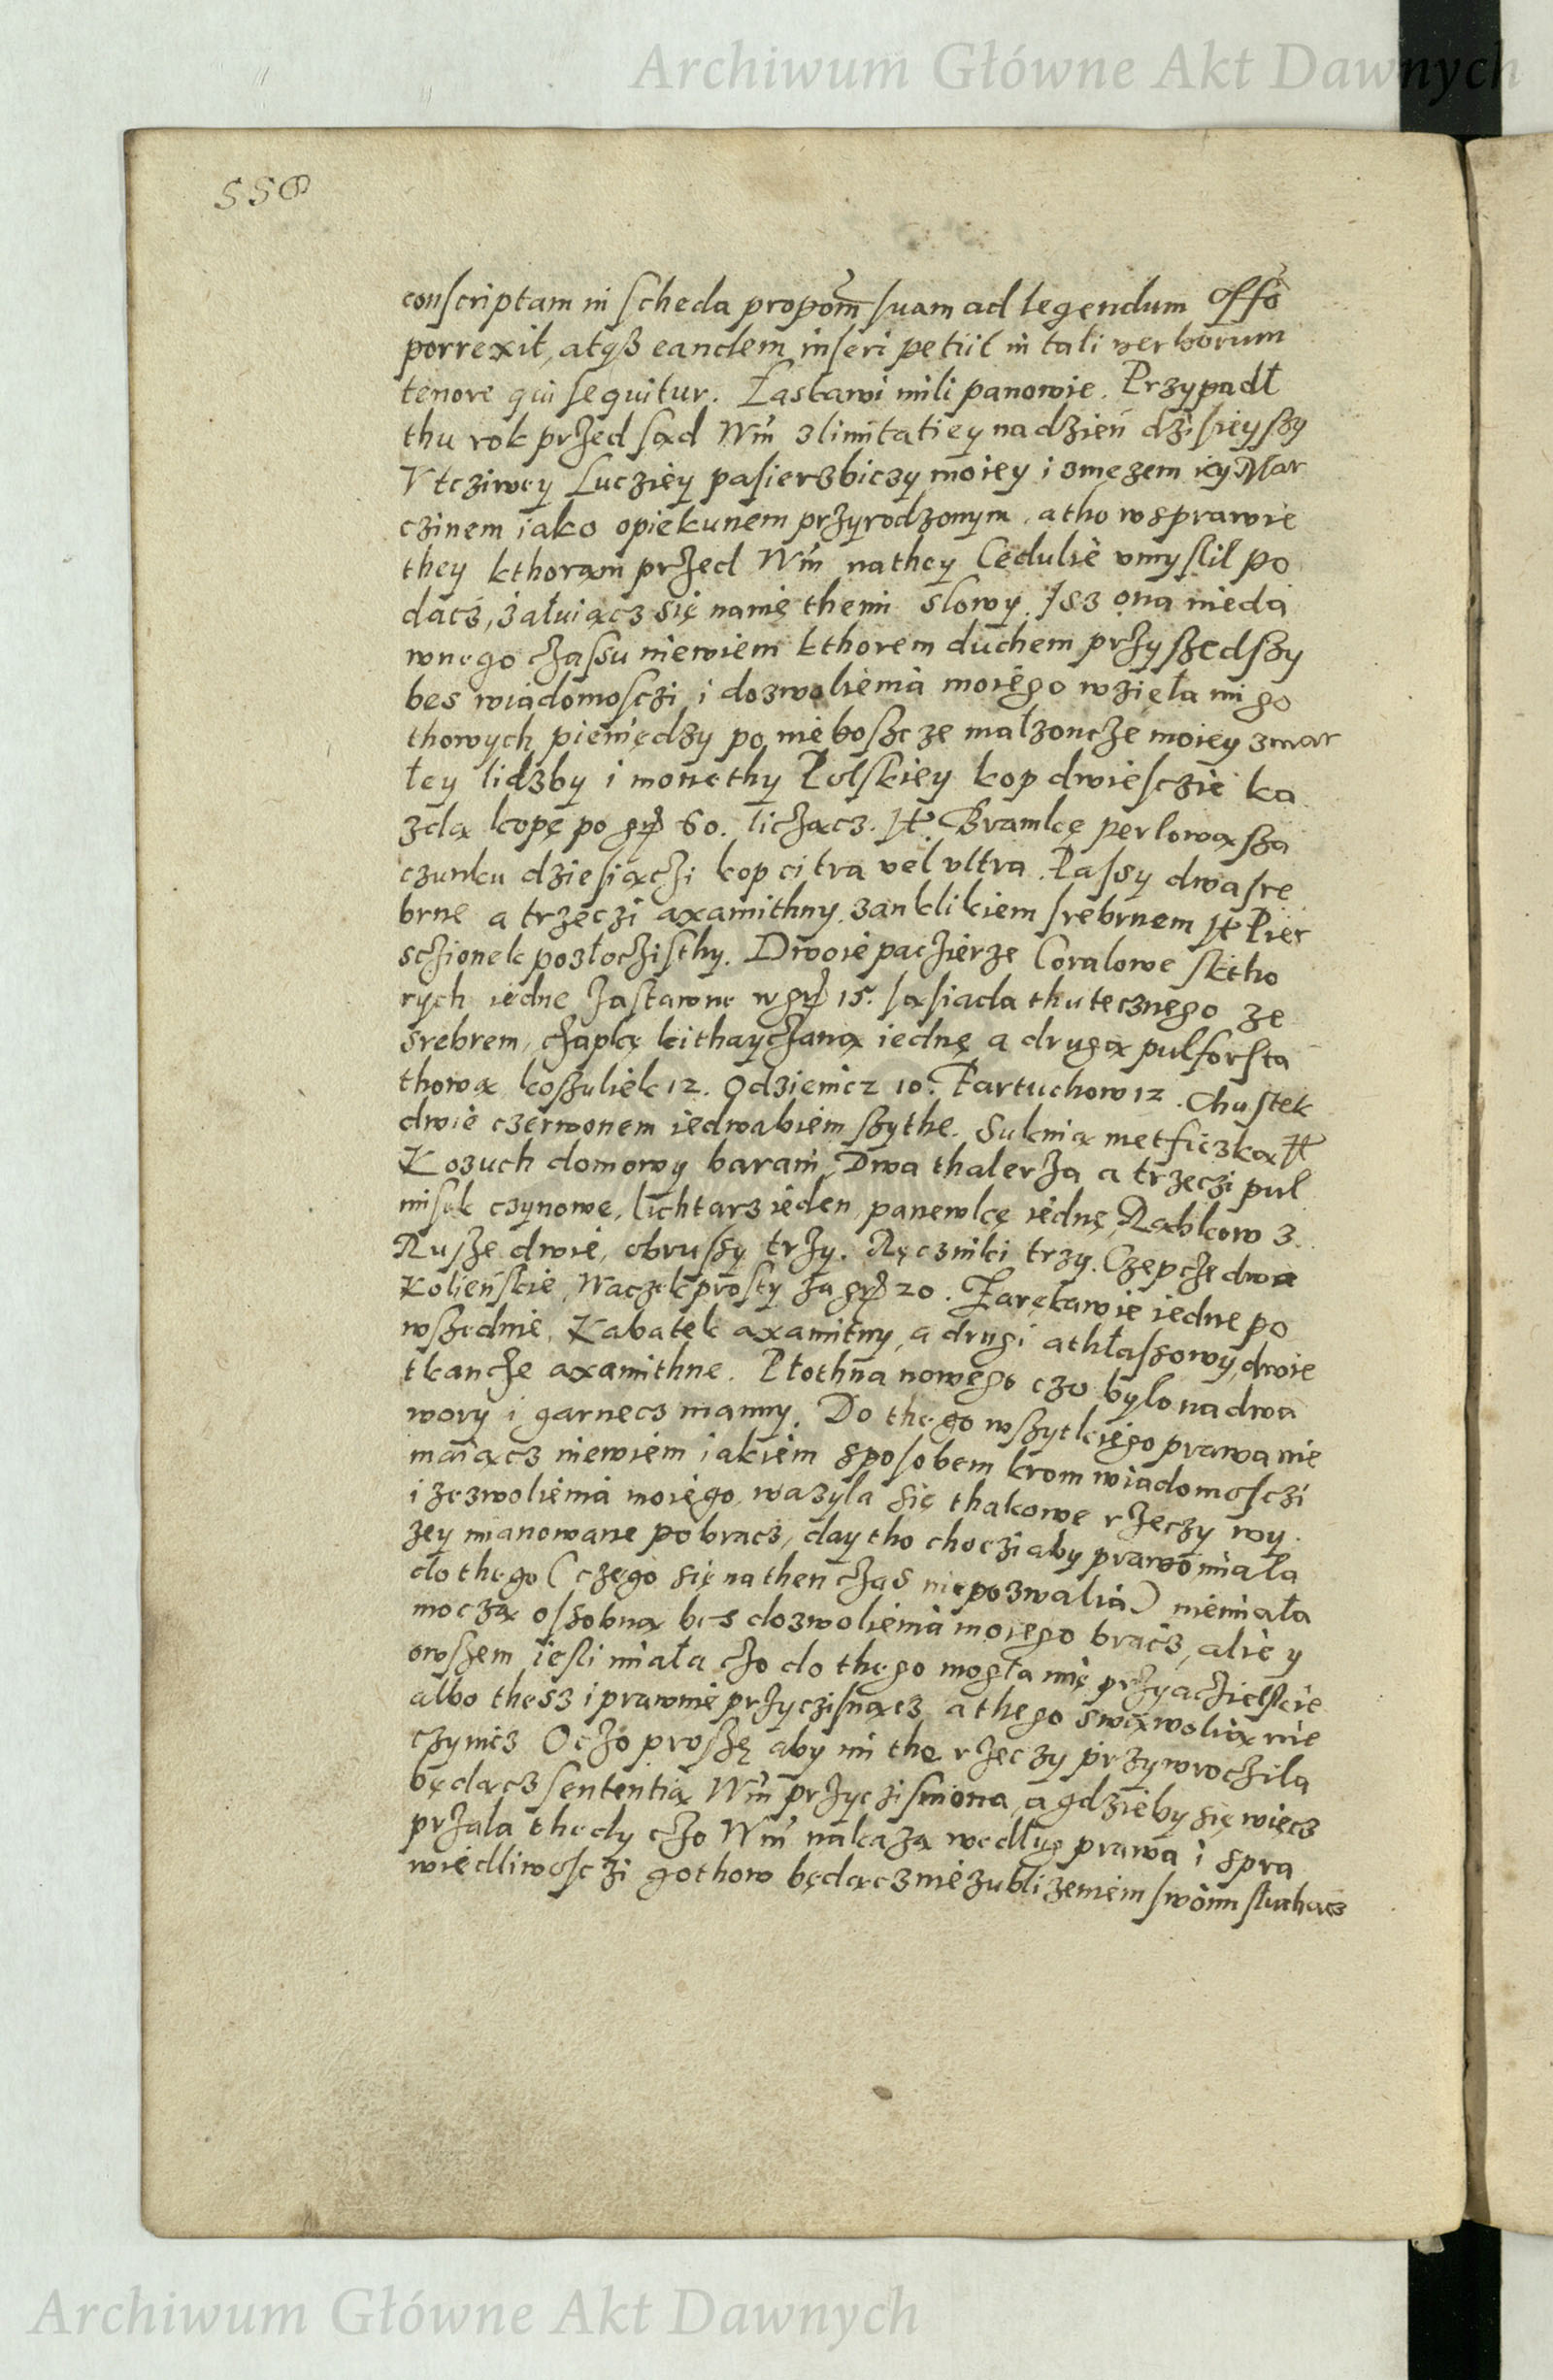 Archiwum Główne Akt Dawnych
558
conscriptam in scheda propom̄ suam ad legendum offō
porrexit, atqꝫ eandem inseri petiit in tali verborum
tenore qui sequitur. Łaskawi mili panowie. Przypadł
thu rok przed sąd Wm̄ z limitatiey na dzień dzisieyszy
Utcziwey Lucziey pasierzbiczy moiey i z męzem iey Mar
czinem iako opiekunem przyrodzonym, a tho w sprawie
they kthorąm przed Wm̄ na they Cedulie umyslil po
dacz, załuiącz się na nię themi slowy. Isz ona nieda
wnego czassu niewiem kthorem duchem przyszedszy
bes wiadomosczi i dozwolienia moiego wzięła mi go
thowych pieniędzy po nieboszcze małzoncze moiey zmar
łey lidzby i monethy Polskiey kop dwiesczie ka
zdą kopę po gꝛ 60. licząc z. It. Bramkę perlową sza
czunku dziesiączi kop citra vel ultra. Passy dwa sre
brne a trzeczi axamithny z anklikiem srebrnem It Pier
sczionek pozłoczisthy. Dwoie paczierze Coralowe s ktho
rych iedne zastawne w gꝛ 15. sąsiada thutecznego ze
srebrem, czapkę kithayczaną iednę a drugą pulforsta
thową, koszuliek 12. Odzienicz 10. Fartuchow 12. Chustek
dwie czerwonem iedwabiem szythe. Suknią metficzką It
Kozuch domowy barani, Dwa thalerza a trzeczi pul
misek czynowe, lichtarz ieden, panewkę iednę, Rąbkow 3.
Rusze dwie, obrussy trzy. Ręczniki trzy. Czepcze dwa
Kolieńskie, Waczek prosty za gꝛ 20. Zarękawie iedne po
wszednie, Kabatek axamitny, a drugi athłassowy, dwoie
tkancze axamithne. Płothna nowego czo bylo na dwa
wory i garnecz manny. Do thego wszytkiego prawa nie
maiącz niewiem iakiem sposobem krom wiadomosczi
i zezwolienia moiego, wazyla się thakowe rzeczy wy
zey mianowane pobracz, day tho choczi aby prawo miała
do thego (czego się na then czas niepozwalia) niemiała
moczą ossobną bes dozwolienia moiego bracz, alie y
owszem iesli miała czo do thego mogła mię przyaczielskie
albo thesz i prawnie przyczisnącz a thego swąwolią nie
czynicz O czo proszę aby mi the rzeczy przywroczila
będącz sententią Wm̄ przyczisniona, a gdzieby się więcz
przala thedy czo Wm̄ nakazą wedlug prawa i spra
wiedliwosczi gothow będącz nie z ubliżeniem swoim sluchacz
Archiwum Główne Akt Dawnych